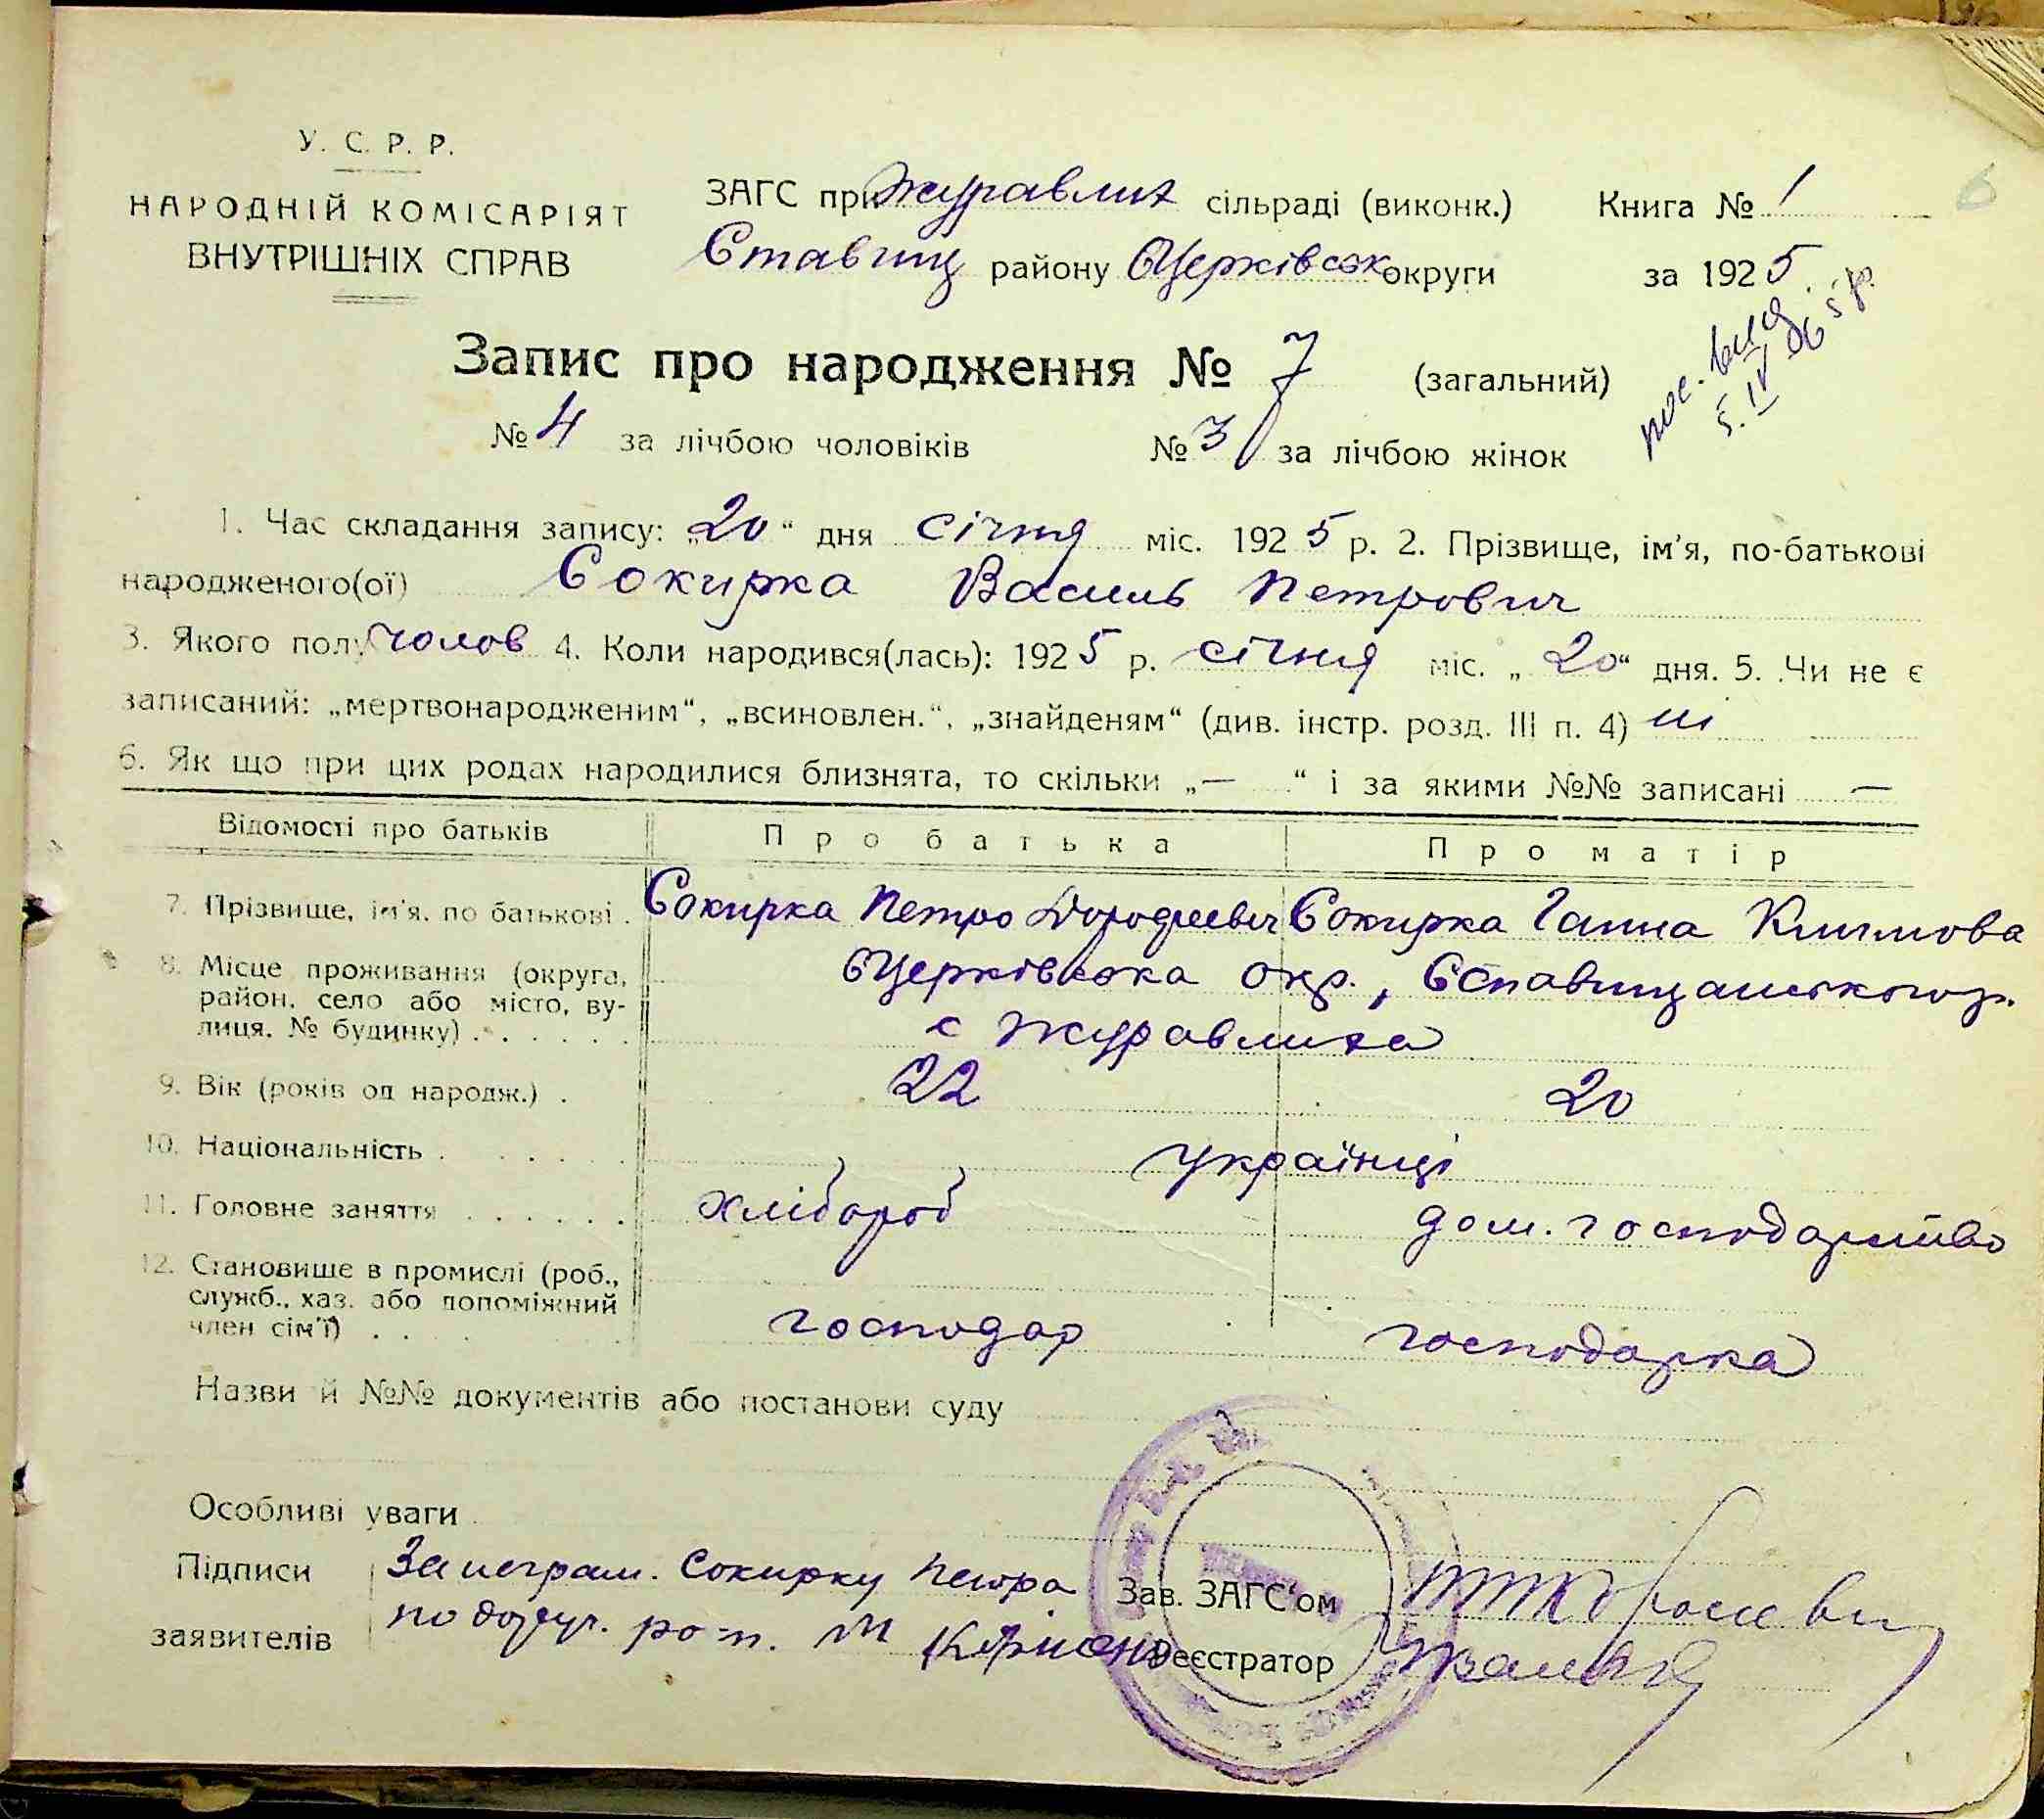 У. С. Р. Р.
НАРОДНІЙ КОМІСАРІЯТ
ВНУТРІШНІХ СПРАВ
ЗАГС при Журавлих сільраді (виконк.) Книга № 1
6
Ставищ району БЦерківськ округи за 1925
5. IV
Запис про народження № 7 (загальний)
№ 4 за лічбою чоловіків № 3 за лічбою жінок
1. Час складання запису: „20“ дня січня міс. 1925 р. 2. Прізвище, ім’я, по-батькові
народженого(ої) Сокирка Василь Петрович
3. Якого полу чолов 4. Коли народився(лась): 1925 р. січня міс. „20“ дня. 5. Чи не є
записаний: „мертвонародженим“, „всиновлен.“, „знайденям“ (див. інстр. розд. III п. 4) ні
6. Як що при цих родах народилися близнята, то скільки „—“ і за якими №№ записані —
Відомості про батьків Про батька Про матір
7. Прізвище, ім’я, по батькові. Сокирка Петро Дорофеевич Сокирка Ганна Климова
8. Місце проживання (округа, БЦерківська окр., Ставищанського р.
район, село або місто, ву- с Журавлиха
лиця, № будинку)
9. Вік (років од народж.) . 22 20
10. Національність . українці
11. Головне заняття хлібороб дом. господарство
12. Становище в промислі (роб.,
служб., хаз. або допоміжний
член сім’ї) . . господар господарка
Назви й №№ документів або постанови суду
Особливі уваги
Підписи За неграм. Сокирку Петра Зав. ЗАГС‘ом
заявителів по доруч. Реєстратор